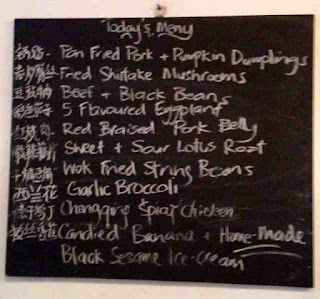 Today's Menu
Pan Fried Pork + Pumpkin Dumplings
Fried Shiitake Mushrooms
Beef + Black Beans
5 Flavoured Eggplant
Red Braised Pork Belly
Sweet + Sour Lotus Root
Wok Fried String Beans
西兰花 Garlic Broccoli
Chongqing Spicy Chicken
Candied Banana + Home-made
Black Sesame Ice-cream